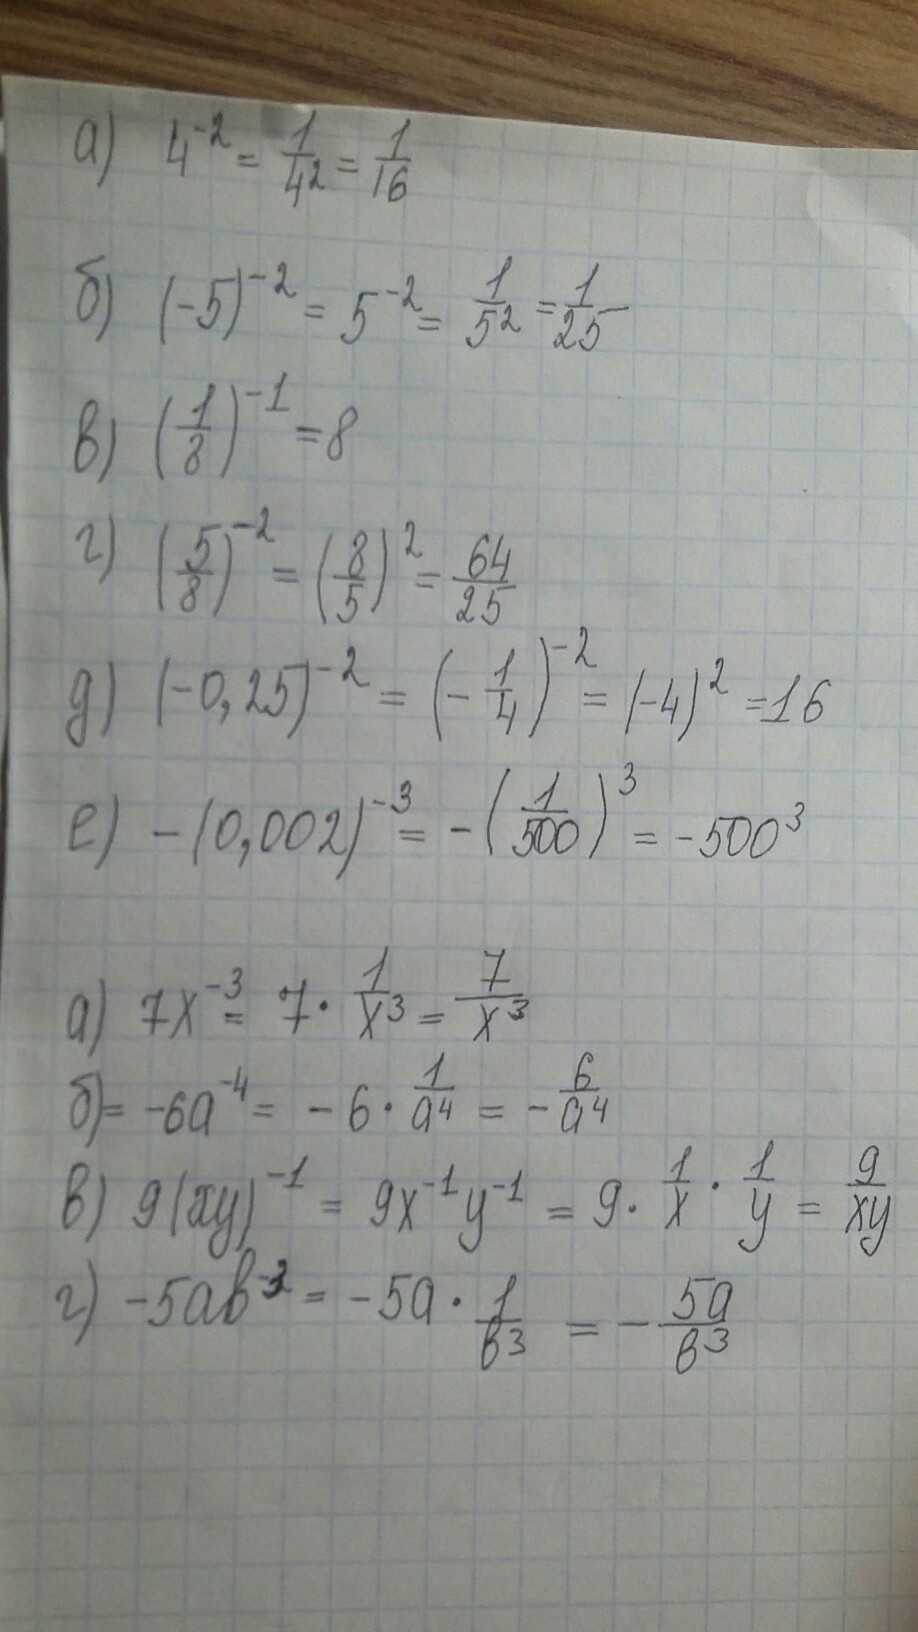 а) 4⁻² = 1/4² = 1/16
б) (-5)⁻² = 5⁻² = 1/5² = 1/25
в) (1/8)⁻¹ = 8
г) (5/8)⁻² = (8/5)² = 64/25
д) (-0,25)⁻² = (-1/4)⁻² = (-4)² = 16
е) -(0,002)⁻³ = -(1/500)³ = -500³
а) 7x⁻³ = 7 · 1/x³ = 7/x³
б) = -6a⁻⁴ = -6 · 1/a⁴ = -6/a⁴
в) 9(xy)⁻¹ = 9x⁻¹y⁻¹ = 9 · 1/x · 1/y = 9/xy
г) -5ab⁻³ = -5a · 1/b³ = -5a/b³